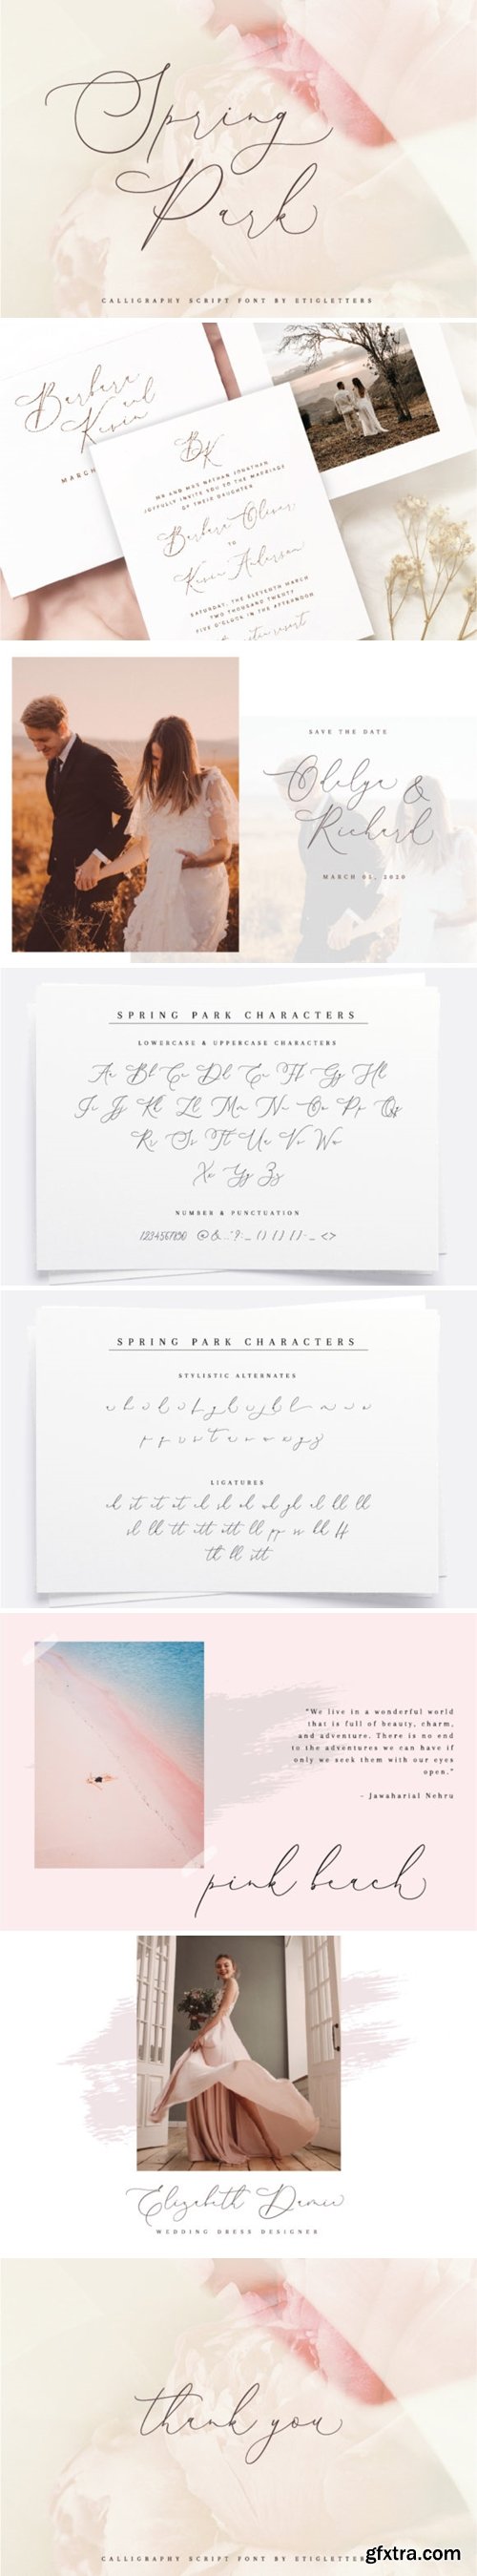 Spring
Park
CALLIGRAPHY SCRIPT FONT BY ETIGLETTERS
Barbara
and
Kevin
MARCH
BK
MR AND MRS NATHAN JONATHAN
JOYFULLY INVITE YOU TO THE MARRIAGE
OF THEIR DAUGHTER
Barbara Olivar
TO
Kevin Anderson
SATURDAY, THE ELEVENTH MARCH
TWO THOUSAND TWENTY
FIVE O'CLOCK IN THE AFTERNOON
resort
SAVE THE DATE
Odelya &
Richard
MARCH 05, 2020
SPRING PARK CHARACTERS
LOWERCASE & UPPERCASE CHARACTERS
Aa Bb Cc Dd Ee Ff Gg Hh
Ii Jj Kk Ll Mm Nn Oo Pp Qq
Rr Ss Tt Uu Vv Ww
Xx Yy Zz
NUMBER & PUNCTUATION
1234567890
SPRING PARK CHARACTERS
STYLISTIC ALTERNATES
LIGATURES
"We live in a wonderful world
that is full of beauty, charm,
and adventure. There is no end
to the adventures we can have if
only we seek them with our eyes
open."
- Jawaharial Nehru
pink beach
Elizabeth Damie
WEDDING DRESS DESIGNER
thank you
CALLIGRAPHY SCRIPT FONT BY ETIGLETTERS
gfxtra.com